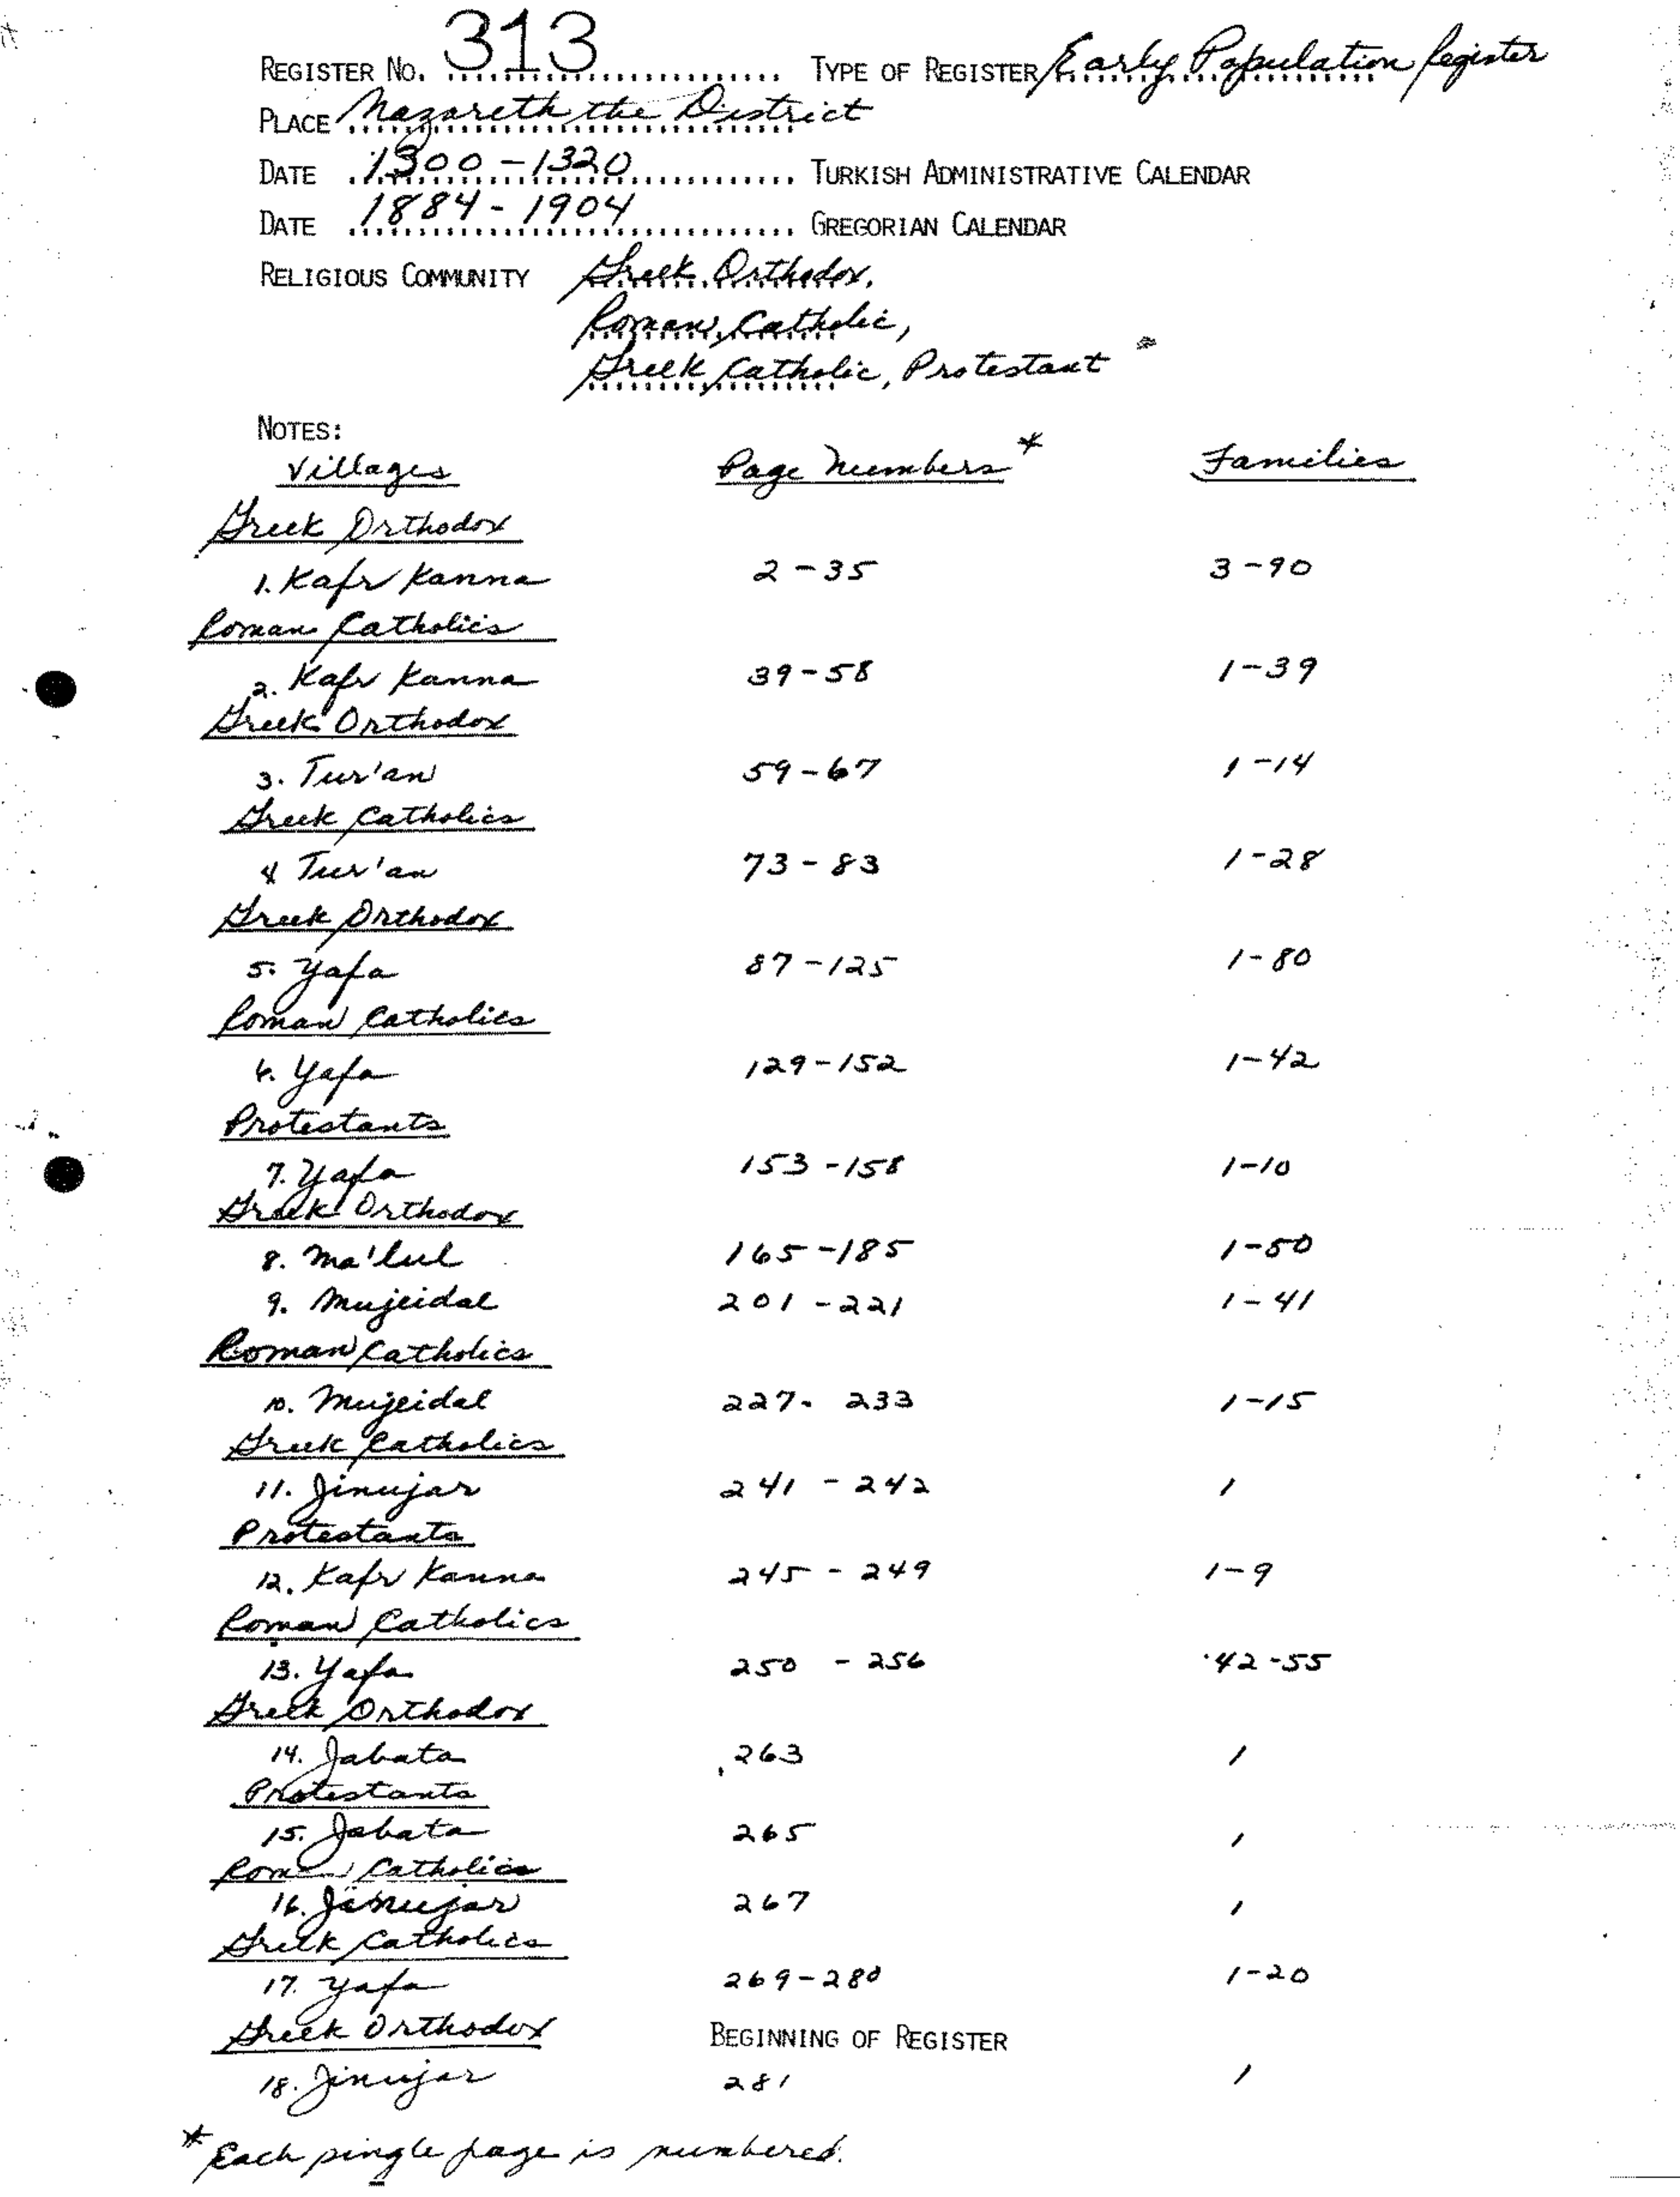 REGISTER NO. 313 TYPE OF REGISTER Early Population Register
PLACE Nazareth the District
DATE 1300-1320 TURKISH ADMINISTRATIVE CALENDAR
DATE 1884-1904 GREGORIAN CALENDAR
RELIGIOUS COMMUNITY Greek Orthodox,
Roman Catholic,
Greek Catholic, Protestant
NOTES:
Villages Page Numbers* Families
Greek Orthodox
1. Kafr Kanna 2-35 3-90
Roman Catholics
2. Kafr Kanna 39-58 1-39
Greek Orthodox
3. Tur'an 59-67 1-14
Greek Catholics
4 Tur'an 73-83 1-28
Greek Orthodox
5. Yafa 87-125 1-80
Roman Catholics
6. Yafa 129-152 1-42
Protestants
7. Yafa 153-158 1-10
Greek Orthodox
8. Ma'lul 165-185 1-50
9. Mujeidal 201-221 1-41
Roman Catholics
10. Mujeidal 227-233 1-15
Greek Catholics
11. Jinujar 241-242 1
Protestants
12. Kafr Kanna 245-249 1-9
Roman Catholics
13. Yafa 250-256 42-55
Greek Orthodox
14. Jabata 263 1
Protestants
15. Jabata 265 1
Roman Catholics
16. Jinujar 267 1
Greek Catholics
17. Yafa 269-280 1-20
Greek Orthodox BEGINNING OF REGISTER
18. Jinujar 281 1
* Each single page is numbered.